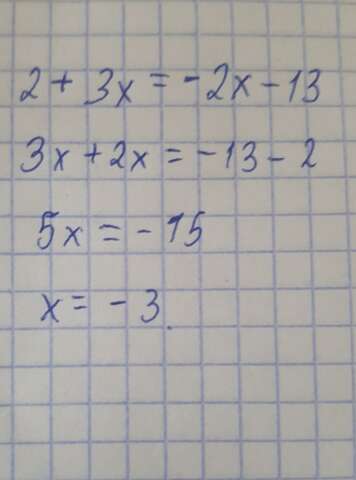 2 + 3x = -2x - 13
3x + 2x = -13 - 2
5x = -15
x = -3.